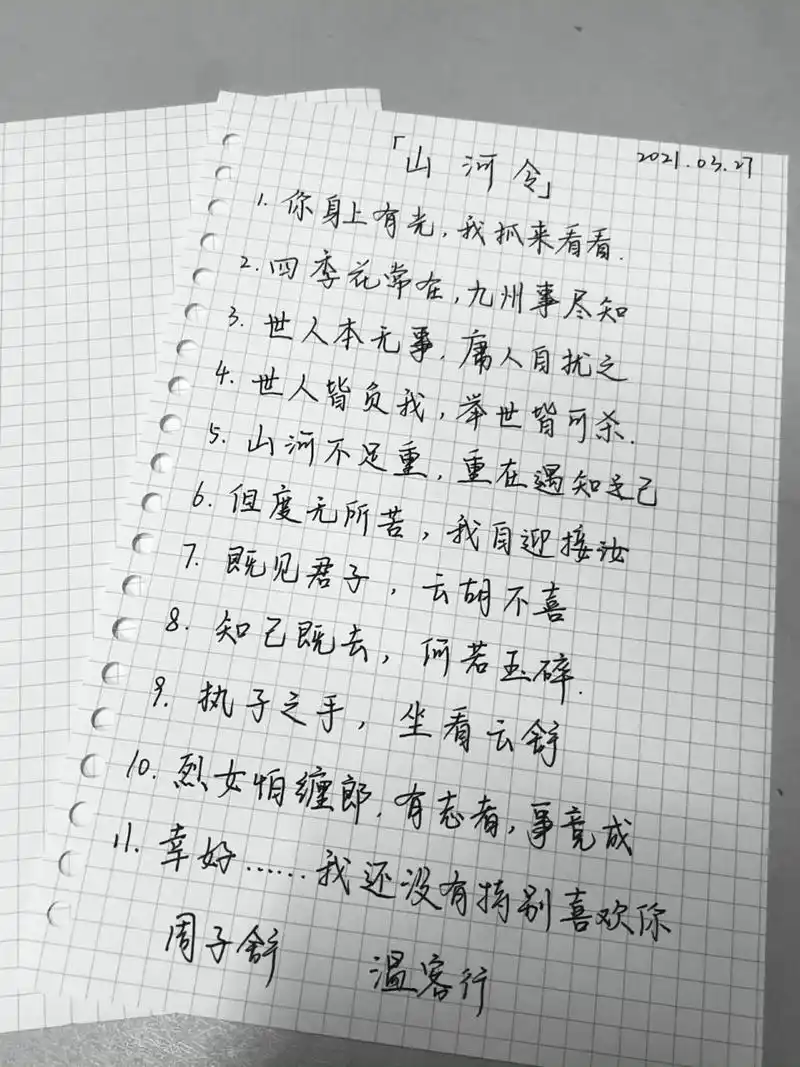 「山河令」 2021.03.27
1. 你身上有光,我抓来看看.
2. 四季花常在,九州事尽知
3. 世人本无事,庸人自扰之
4. 世人皆负我,举世皆可杀.
5. 山河不足重,重在遇知己
6. 但度无所苦,我自迎接汝
7. 既见君子,云胡不喜
8. 知己既去,何若玉碎.
9. 执子之手,坐看云舒
10. 烈女怕缠郎,有志者,事竟成
11. 幸好……我还没有特别喜欢你
周子舒 温客行